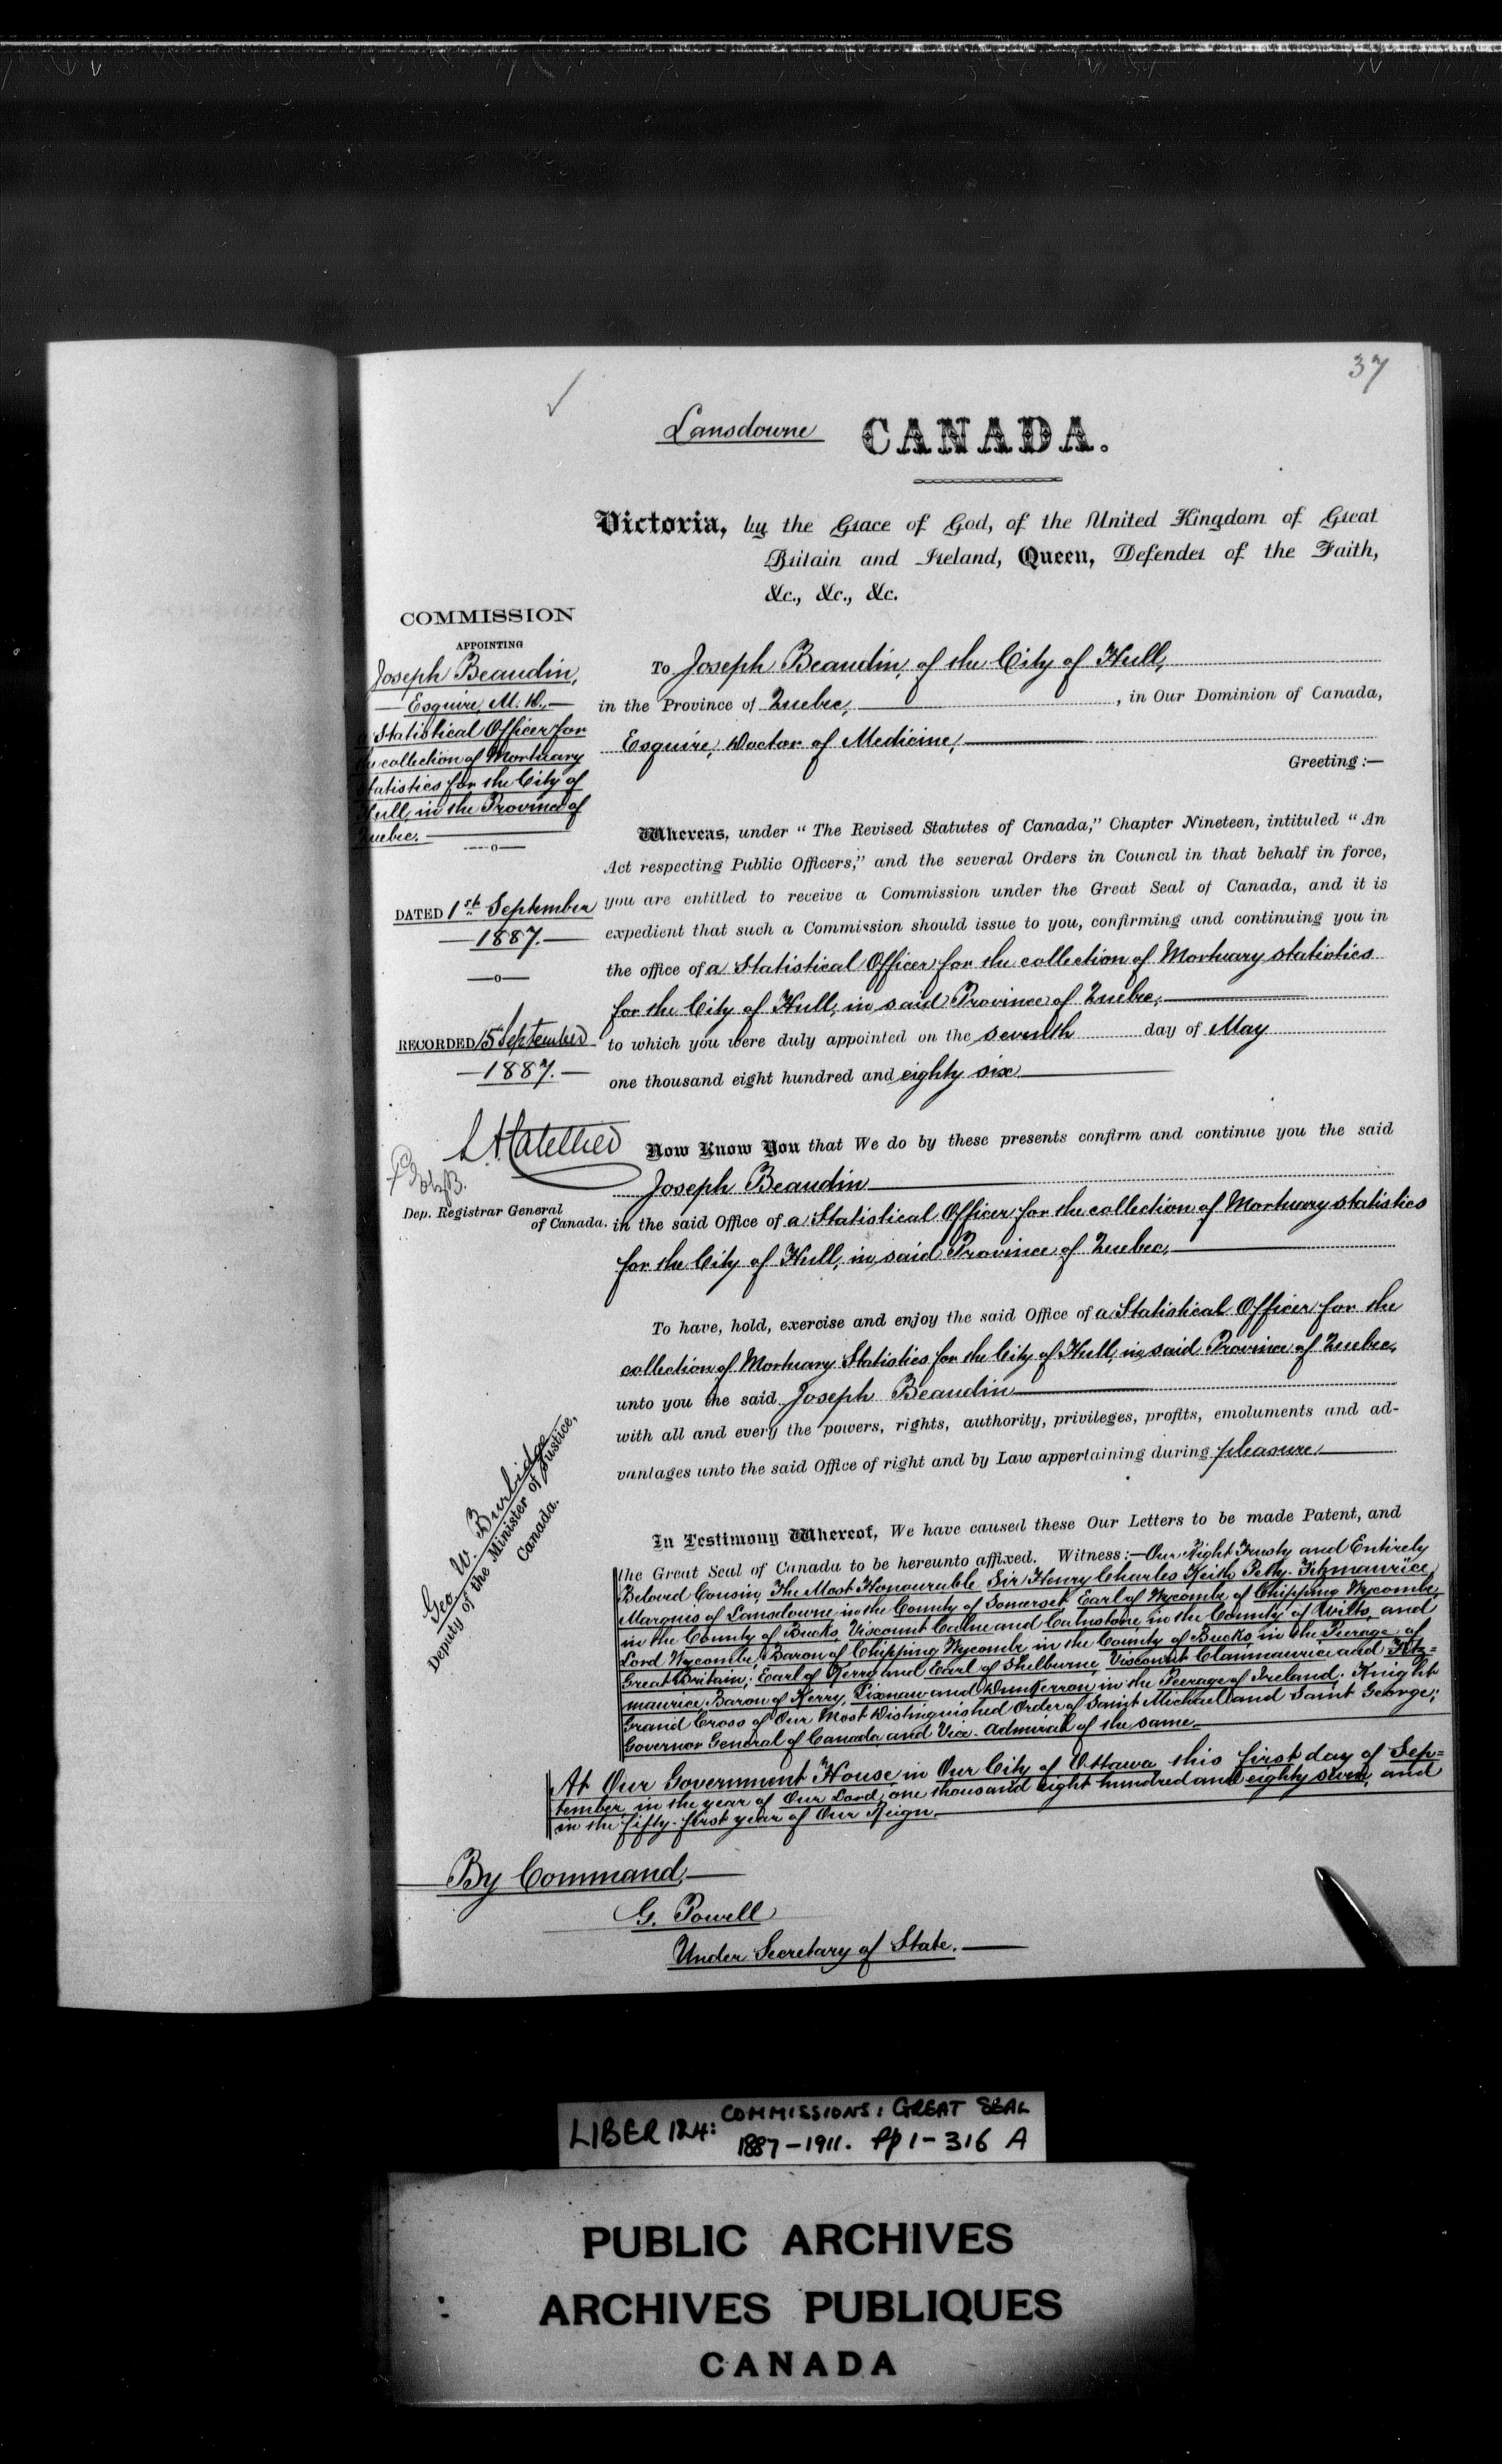 37
Lansdowne CANADA.
Victoria, by the Grace of God, of the United Kingdom of Great
Britain and Ireland, Queen, Defender of the Faith,
&c., &c., &c.
COMMISSION
APPOINTING
Joseph Beaudin,
— Esquire, M. D., —
a Statistical Officer for
the collection of Mortuary
Statistics for the City of
Hull, in the Province of
Quebec. —
----o—
DATED 1st September
— 1887. —
—o—
RECORDED 15 September
— 1887. —
Dep. Registrar General
of Canada.
Geo. W. Burbidge
Deputy of the Minister of Justice,
Canada.
To Joseph Beaudin, of the City of Hull,
in the Province of Quebec, , in Our Dominion of Canada,
Esquire, Doctor of Medicine,
Greeting :—
Whereas, under “ The Revised Statutes of Canada,” Chapter Nineteen, intituled “ An
Act respecting Public Officers,” and the several Orders in Council in that behalf in force,
you are entitled to receive a Commission under the Great Seal of Canada, and it is
expedient that such a Commission should issue to you, confirming and continuing you in
the office of a Statistical Officer for the collection of Mortuary statistics
for the City of Hull, in said Province of Quebec,
to which you were duly appointed on the seventh day of May
one thousand eight hundred and eighty six
Now Know You that We do by these presents confirm and continue you the said
Joseph Beaudin
in the said Office of a Statistical Officer for the collection of Mortuary statistics
for the City of Hull, in said Province of Quebec,
To have, hold, exercise and enjoy the said Office of a Statistical Officer for the
collection of Mortuary Statistics for the City of Hull, in said Province of Quebec,
unto you the said Joseph Beaudin
with all and every the powers, rights, authority, privileges, profits, emoluments and ad-
vantages unto the said Office of right and by Law appertaining during pleasure,
In Testimony Whereof, We have caused these Our Letters to be made Patent, and
the Great Seal of Canada to be hereunto affixed. Witness :— Our Right Trusty and Entirely
Beloved Cousin, The Most Honourable Sir Henry Charles Keith Petty-Fitzmaurice,
Marques of Lansdowne in the County of Somerset, Earl of Wycombe of Chipping Wycombe,
in the County of Bucks, Viscount Calne and Calnstone, in the County of Wilts, and
Lord Wycombe, Baron of Chipping Wycombe in the County of Bucks, in the Peerage of
Great Britain; Earl of Kerry and Earl of Shelburne, Viscount Clanmaurice and Fitz=
maurice, Baron of Kerry, Lixnaw and Dunkerron in the Peerage of Ireland; Knight
Grand Cross of Our Most Distinguished Order of Saint Michael and Saint George;
Governor General of Canada and Vice-Admiral of the same.
At Our Government House in Our City of Ottawa, this first day of Sep=
tember in the year of Our Lord, one thousand eight hundred and eighty seven, and
in the fifty-first year of Our Reign.
By Command,
G. Powell
Under Secretary of State.
LIBER 124: COMMISSIONS: GREAT SEAL
1887-1911. pp 1-316 A
PUBLIC ARCHIVES
ARCHIVES PUBLIQUES
CANADA